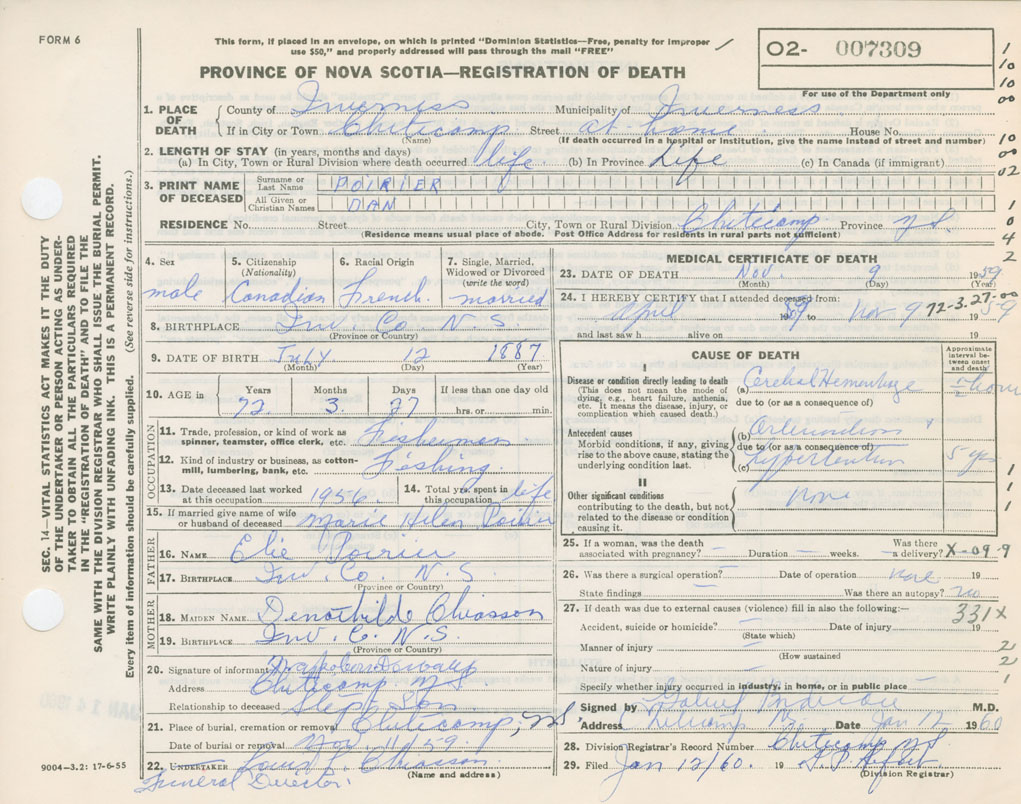 FORM 6
This form, if placed in an envelope, on which is printed "Dominion Statistics—Free, penalty for improper
use $50," and properly addressed will pass through the mail "FREE"
O2- 007309
For use of the Department only
PROVINCE OF NOVA SCOTIA—REGISTRATION OF DEATH
1. PLACE OF DEATH
County of Inverness Municipality of Inverness
If in City or Town Cheticamp Street at home House No.
(Name) (If death occurred in a hospital or institution, give the name instead of street and number)
2. LENGTH OF STAY (in years, months and days)
(a) In City, Town or Rural Division where death occurred life (b) In Province Life (c) In Canada (if immigrant)
3. PRINT NAME OF DECEASED
Surname or Last Name POIRIER
All Given or Christian Names DAN
RESIDENCE No. Street City, Town or Rural Division Cheticamp Province N.S.
(Residence means usual place of abode. Post Office Address for residents in rural parts not sufficient)
4. Sex male
5. Citizenship (Nationality) Canadian
6. Racial Origin French
7. Single, Married, Widowed or Divorced (write the word) married
8. BIRTHPLACE Inv. Co. N.S.
(Province or Country)
9. DATE OF BIRTH July 12 1887
(Month) (Day) (Year)
10. AGE in Years 72 Months 3 Days 27 If less than one day old
hrs. or min.
OCCUPATION
11. Trade, profession, or kind of work as
spinner, teamster, office clerk, etc. Fisherman
12. Kind of industry or business, as cotton-
mill, lumbering, bank, etc. Fishing
13. Date deceased last worked
at this occupation 1956
14. Total yrs. spent in
this occupation life
15. If married give name of wife
or husband of deceased Marie Helen Poirier
FATHER
16. NAME Elie Poirier
17. BIRTHPLACE Inv. Co. N.S.
(Province or Country)
MOTHER
18. MAIDEN NAME Chiasson
19. BIRTHPLACE Inv. Co. N.S.
(Province or Country)
20. Signature of informant
Address Cheticamp N.S.
Relationship to deceased Step Son
21. Place of burial, cremation or removal Cheticamp, N.S.
Date of burial or removal Nov 11.59
22. UNDERTAKER Chiasson
Funeral Director (Name and address)
9004-3.2: 17-6-55
MEDICAL CERTIFICATE OF DEATH
23. DATE OF DEATH Nov. 9 1959
(Month) (Day) (Year)
24. I HEREBY CERTIFY that I attended deceased from:
April 1959 to Nov 9 1959
72-3.27-00
and last saw h alive on 19
CAUSE OF DEATH
Approximate interval between onset and death
I
Disease or condition directly leading to death
(This does not mean the mode of
dying, e.g., heart failure, asthenia,
etc. It means the disease, injury, or
complication which caused death.)
(a) Cerebral Hemorrhage
due to (or as a consequence of)
Antecedent causes
Morbid conditions, if any, giving
rise to the above cause, stating the
underlying condition last.
(b)
due to (or as a consequence of)
(c) Hypertention 5 yrs
II
Other significant conditions
contributing to the death, but not
related to the disease or condition
causing it.
None
25. If a woman, was the death
associated with pregnancy? — Duration — weeks. Was there
a delivery? X-09.9
26. Was there a surgical operation? — Date of operation none 19
State findings Was there an autopsy? no
27. If death was due to external causes (violence) fill in also the following:—
331X
Accident, suicide or homicide? — Date of injury 19
(State which)
Manner of injury —
(How sustained
Nature of injury —
Specify whether injury occurred in industry, in home, or in public place —
Signed by M.D.
Address Cheticamp Date Jan 12 1960
28. Division Registrar's Record Number Cheticamp N.S.
29. Filed Jan 12/60 19
(Division Registrar)
SEC. 14—VITAL STATISTICS ACT MAKES IT THE DUTY
OF THE UNDERTAKER OR PERSON ACTING AS UNDER-
TAKER TO OBTAIN ALL THE PARTICULARS REQUIRED
IN THE "REGISTRATION OF DEATH" AND TO FILE THE
SAME WITH THE DIVISION REGISTRAR WHO SHALL ISSUE THE BURIAL PERMIT.
WRITE PLAINLY WITH UNFADING INK. THIS IS A PERMANENT RECORD.
Every item of information should be carefully supplied. (See reverse side for instructions.)
1
10
10
00
10
00
02
1
0
4
2
1
1
1
2
2
1